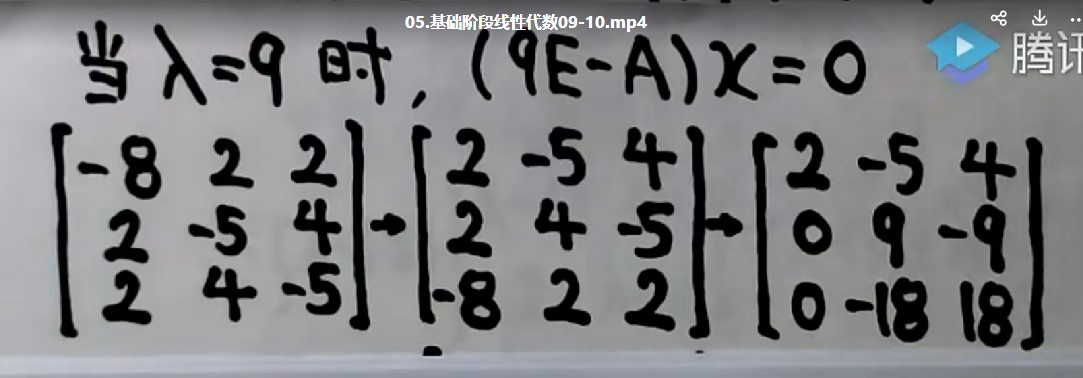 05.基础阶段线性代数09-10.mp4
腾讯
当 λ=9 时, (9E-A)x=0
[-8 2 2] [2 -5 4] [2 -5 4]
[2 -5 4] → [2 4 -5] → [0 9 -9]
[2 4 -5] [-8 2 2] [0 -18 18]